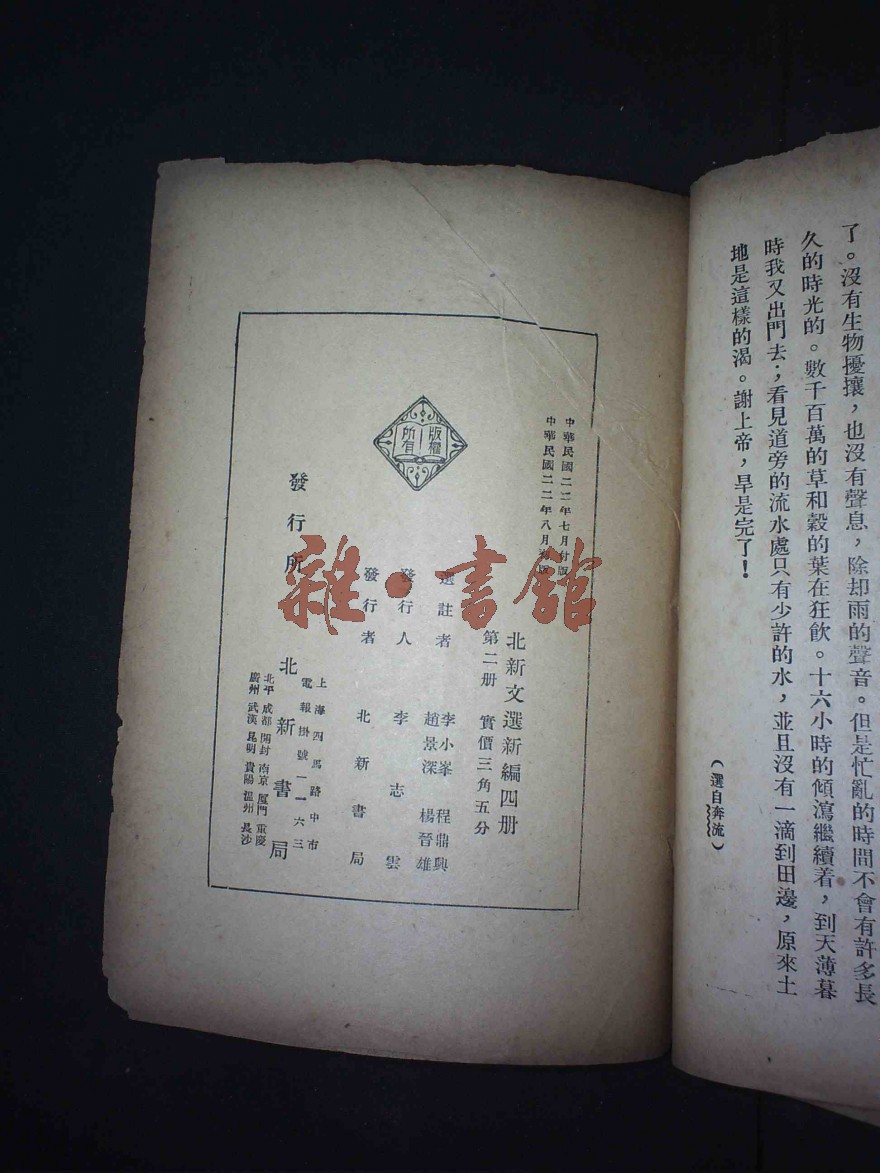 了。沒有生物擾攘，也沒有聲息，除却雨的聲音。但是忙亂的時間不會有許多長
久的時光的。數千百萬的草和穀的葉在狂飲。十六小時的傾瀉繼續着，到天薄暮
時我又出門去；看見道旁的流水處只有少許的水，並且沒有一滴到田邊，原來土
地是這樣的渴。謝上帝，旱是完了！
（選自奔流）
中華民國二二年七月付版
中華民國二二年八月初版
北新文選新編四册
第二册 實價三角五分
選註者 李小峯 程鼎興
趙景深 楊晉雄
發行人 李志雲
發行者 北新書局
版權
所有
發行所 北新書局
上海四馬路中市
電報掛號一一六三
北平 成都 開封 南京 厦門 重慶
廣州 武漢 昆明 貴陽 溫州 長沙
雜·書館